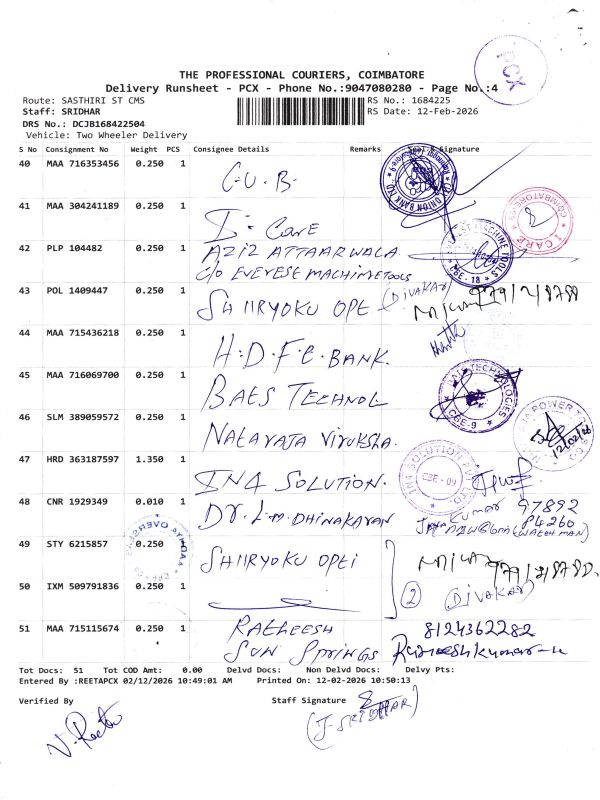 PCX
THE PROFESSIONAL COURIERS, COIMBATORE
Delivery Runsheet - PCX - Phone No.:9047080280 - Page No.:4
Route: SASTHIRI ST CMS
RS No.: 1684225
Staff: SRIDHAR
RS Date: 12-Feb-2026
DRS No.: DCJB168422504
Vehicle: Two Wheeler Delivery
S No Consignment No Weight PCS Consignee Details Remarks Seal & Signature
40 MAA 716353456 0.250 1 C.U.B.
41 MAA 304241189 0.250 1 I-Care
42 PLP 104482 0.250 1 AZIZ ATTAARWALA
C/o EVEREST MACHINETOOLS
43 POL 1409447 0.250 1 SHIIRYOKU OPTI (DIVAKAR)
44 MAA 715436218 0.250 1 H.D.F.C BANK.
45 MAA 716069700 0.250 1 BAES TECHNOL
CBE-9
46 SLM 389059572 0.250 1 NATARAJA VIRUKSHA.
12/02/26
47 HRD 363187597 1.350 1 IN4 SOLUTION.
IN4 SOLUTION
CBE - 09
48 CNR 1929349 0.010 1 Dr. L.M. DHINAKARAN
Kumar 97892
P4260
(WATCHMAN)
49 STY 6215857 0.250 1 SHIIRYOKU OPTI
50 IXM 509791836 0.250 1
(2) (DIVAKAR)
51 MAA 715115674 0.250 1 RATHEESH 8124362282
SUN SPRINGS
Tot Docs: 51 Tot COD Amt: 0.00 Delvd Docs: Non Delvd Docs: Delvy Pts:
Entered By :REETAPCX 02/12/2026 10:49:01 AM Printed On: 12-02-2026 10:50:13
Verified By
Staff Signature
N. Reeta
(J. SRIDHAR)